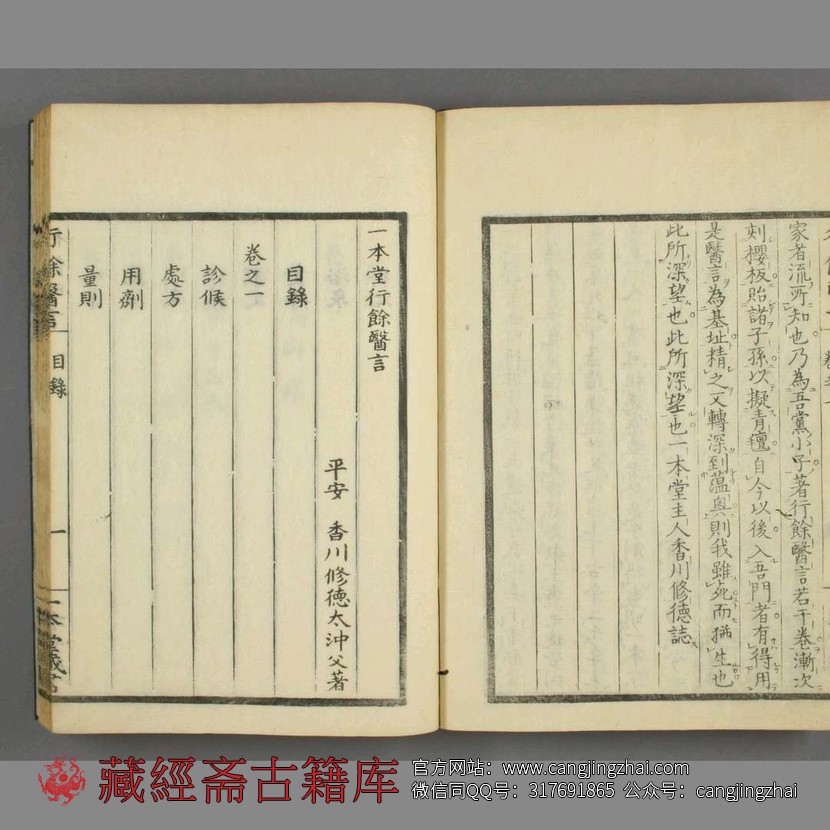 家者流所知也乃為吾黨小子著行餘醫言若干卷漸次
刻櫻板貽諸子孫以擬青氊自今以後入吾門者有得用
是醫言為基址精之又轉深到蘊奥則我雖死而猶生也
此所深望也此所深望也一本堂主人香川修德誌
一本堂行餘醫言
平安 香川修德太沖父著
目錄
卷之一
診候
處方
用劑
量則
行餘醫言 目錄 一
藏經斋古籍库
官方网站：www.cangjingzhai.com
微信同QQ号：317691865 公众号：cangjingzhai